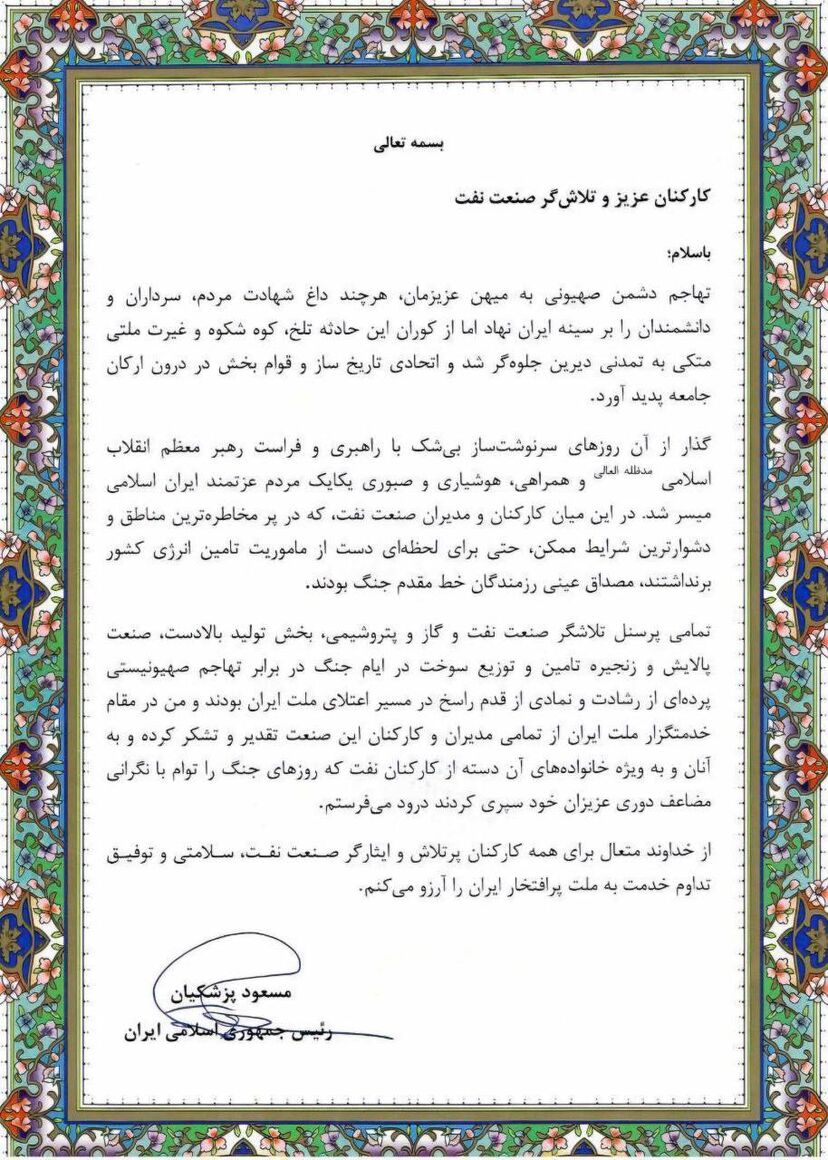 بسمه تعالی
کارکنان عزیز و تلاش‌گر صنعت نفت
باسلام؛
تهاجم دشمن صهیونی به میهن عزیزمان، هرچند داغ شهادت مردم، سرداران و
دانشمندان را بر سینه ایران نهاد اما از کوران این حادثه تلخ، کوه شکوه و غیرت ملتی
متکی به تمدنی دیرین جلوه‌گر شد و اتحادی تاریخ ساز و قوام بخش در درون ارکان
جامعه پدید آورد.
گذار از آن روزهای سرنوشت‌ساز بی‌شک با راهبری و فراست رهبر معظم انقلاب
اسلامی مدظله العالی و همراهی، هوشیاری و صبوری یکایک مردم عزتمند ایران اسلامی
میسر شد. در این میان کارکنان و مدیران صنعت نفت، که در پر مخاطره‌ترین مناطق و
دشوارترین شرایط ممکن، حتی برای لحظه‌ای دست از ماموریت تامین انرژی کشور
برنداشتند، مصداق عینی رزمندگان خط مقدم جنگ بودند.
تمامی پرسنل تلاشگر صنعت نفت و گاز و پتروشیمی، بخش تولید بالادست، صنعت
پالایش و زنجیره تامین و توزیع سوخت در ایام جنگ در برابر تهاجم صهیونیستی
پرده‌ای از رشادت و نمادی از قدم راسخ در مسیر اعتلای ملت ایران بودند و من در مقام
خدمتگزار ملت ایران از تمامی مدیران و کارکنان این صنعت تقدیر و تشکر کرده و به
آنان و به ویژه خانواده‌های آن دسته از کارکنان نفت که روزهای جنگ را توام با نگرانی
مضاعف دوری عزیزان خود سپری کردند درود می‌فرستم.
از خداوند متعال برای همه کارکنان پرتلاش و ایثارگر صنعت نفت، سلامتی و توفیق
تداوم خدمت به ملت پرافتخار ایران را آرزو می‌کنم.
مسعود پزشکیان
رئیس جمهوری اسلامی ایران